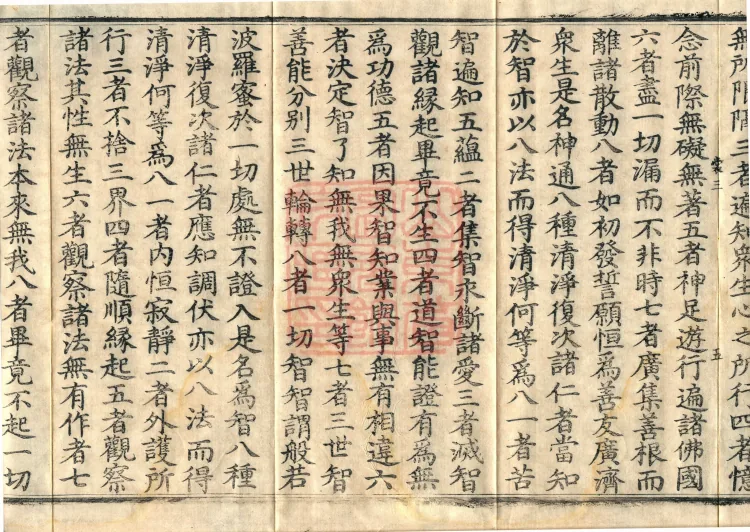 無所障隔三者遍知眾生心之所行四者憶
念前際無礙無著五者神足遊行遍諸佛國
六者盡一切漏而不非時七者廣集善根而
離諸散動八者如初發誓願恒為善友廣濟
衆生是名神通八種清淨復次諸仁者當知
於智亦以八法而得清淨何等為八一者苦
智遍知五蘊二者集智永斷諸愛三者滅智
觀諸緣起畢竟不生四者道智能證有為無
為功德五者因果智知業與事無有相違六
者決定智了知無我無眾生等七者三世智
善能分別三世輪轉八者一切智智謂般若
波羅蜜於一切處無不證入是名為智八種
清淨復次諸仁者應知調伏亦以八法而得
清淨何等為八一者內恒寂靜二者外護所
行三者不捨三界四者隨順緣起五者觀察
諸法其性無生六者觀察諸法無有作者七
者觀察諸法本來無我八者畢竟不起一切